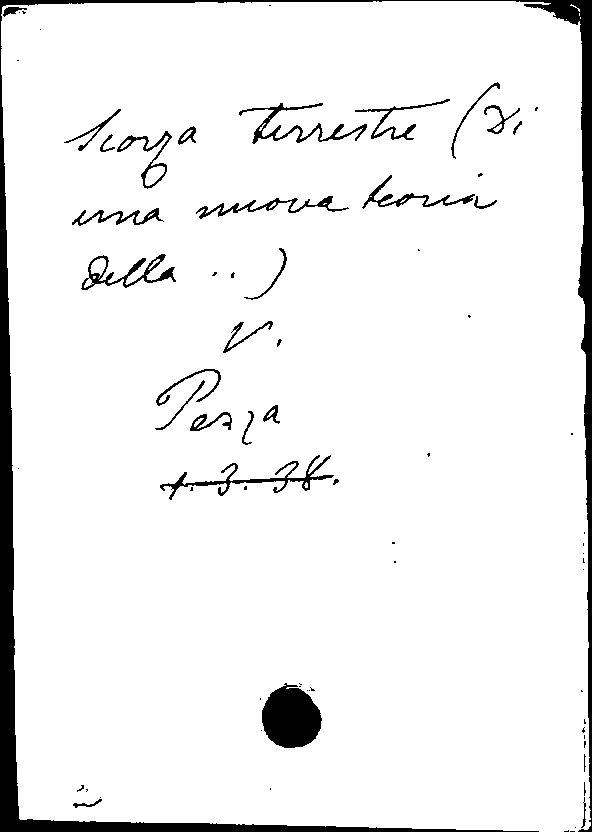 Scorza terrestre (Di
una nuova teoria
della ..)
V.
Pezza
1.3.38.